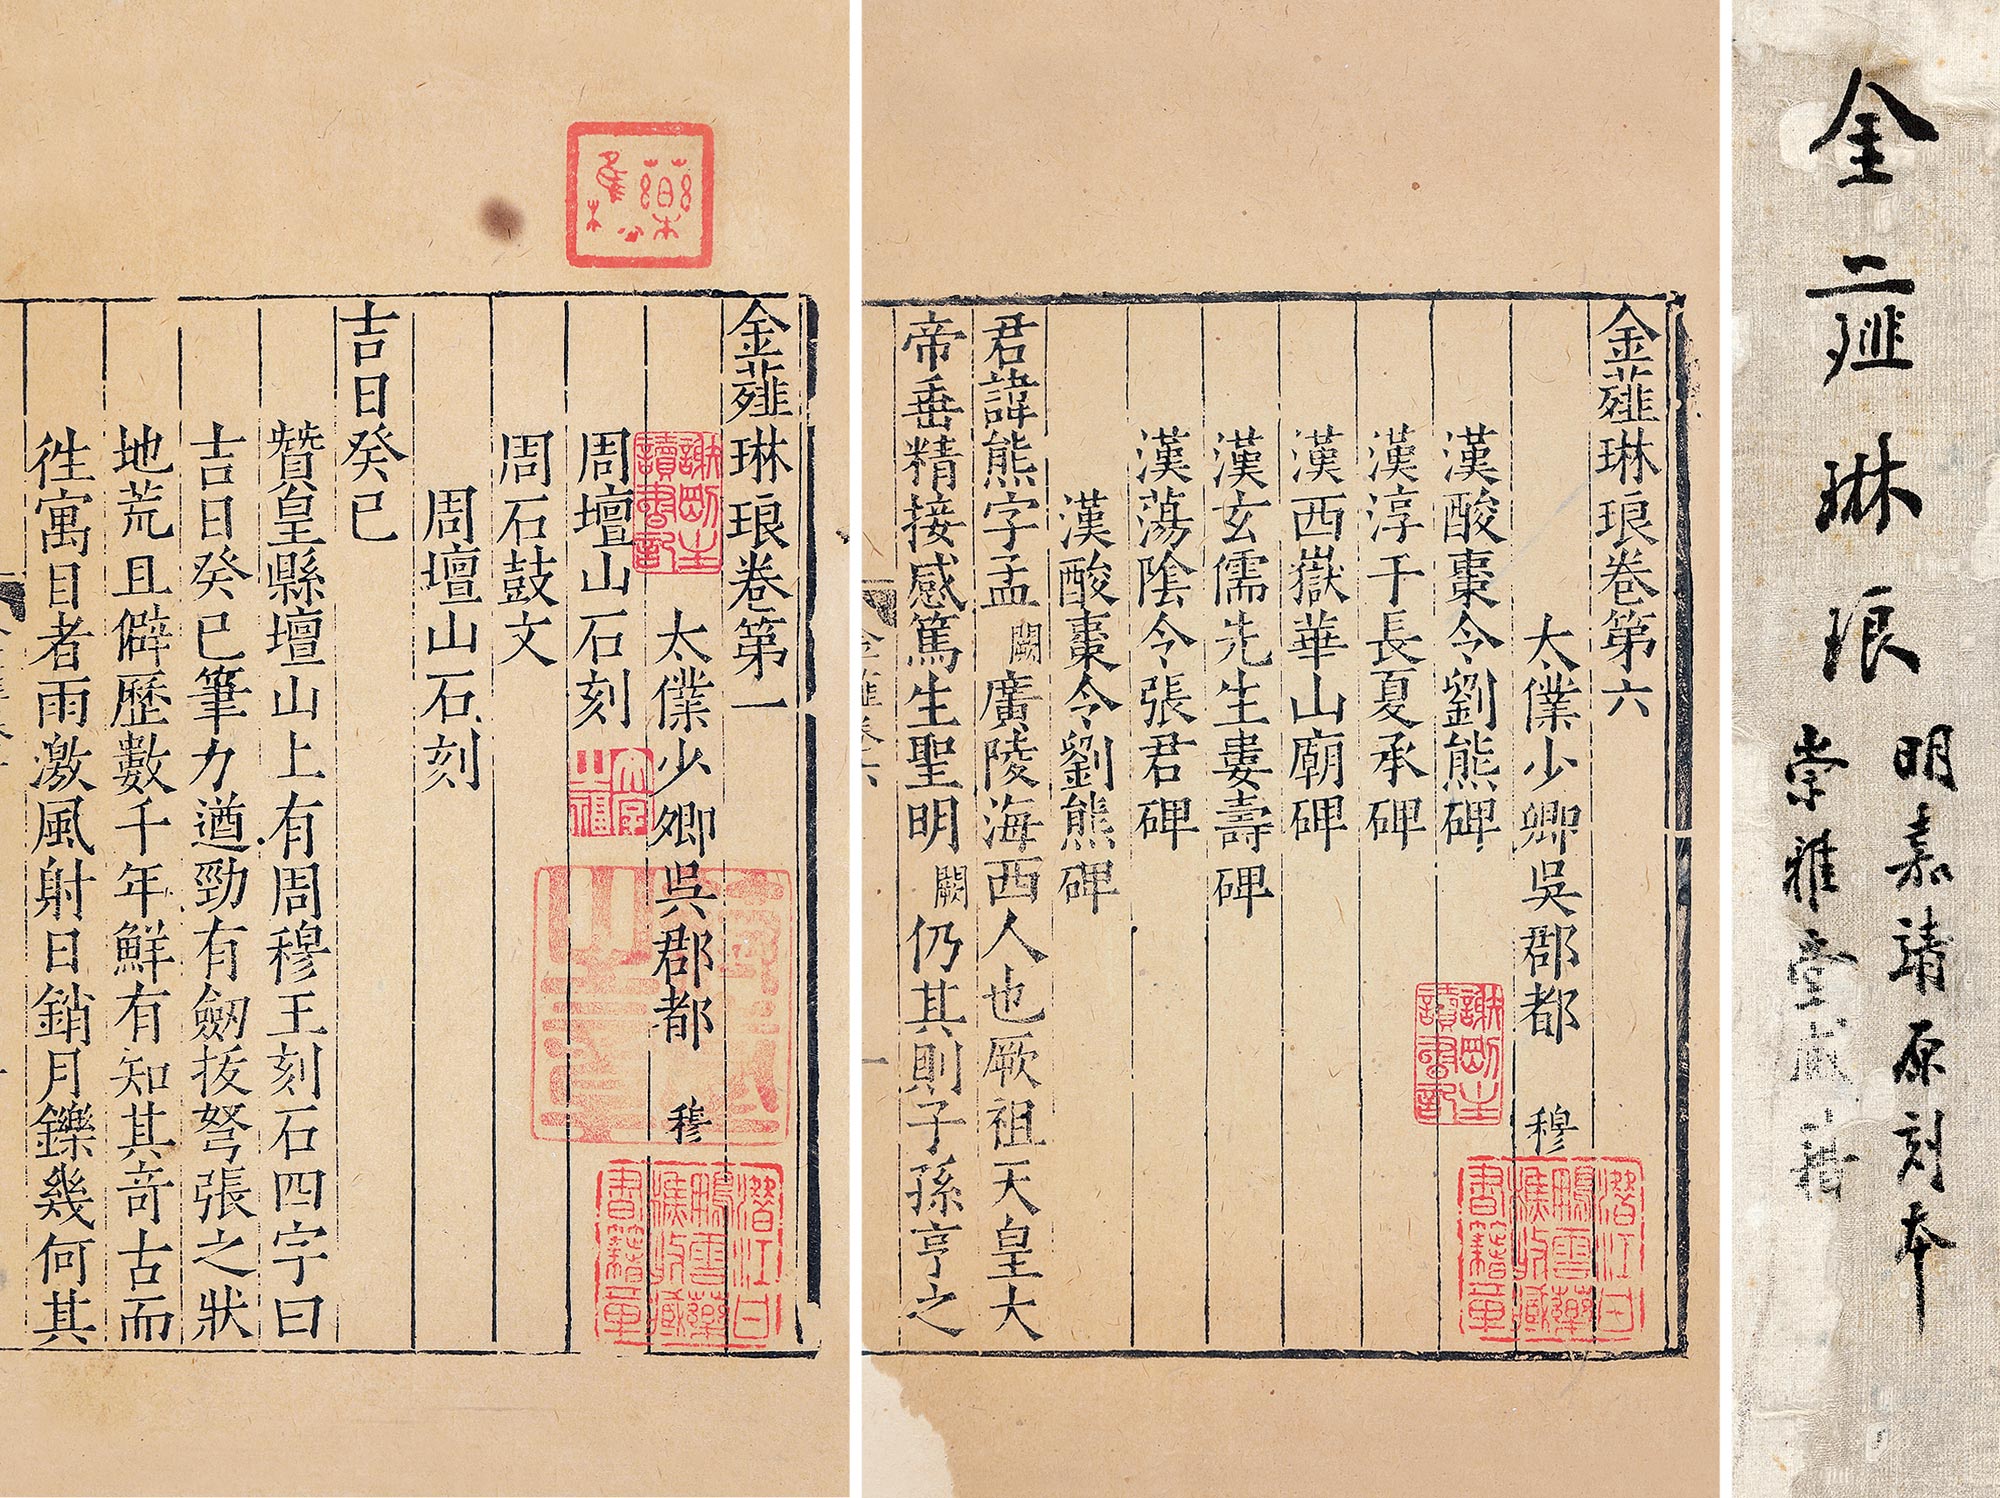 藥樵
金薤琳琅卷第一
太僕少卿吳郡都 穆
周壇山石刻
周石鼓文
周壇山石刻
吉日癸巳
贊皇縣壇山上有周穆王刻石四字曰
吉日癸巳筆力遒勁有劒拔弩張之狀
地荒且僻歷數千年鮮有知其奇古而
徃寓目者雨激風射日銷月鑠幾何其
謝剛主讀書記
崇雅堂藏書
潛江甘鵬雲藥樵收藏書籍章
金薤琳琅卷第六
太僕少卿吳郡都 穆
漢酸棗令劉熊碑
漢淳于長夏承碑
漢西嶽華山廟碑
漢玄儒先生婁壽碑
漢蕩陰令張君碑
漢酸棗令劉熊碑
君諱熊字孟闕廣陵海西人也厥祖天皇大
帝垂精接感篤生聖明闕仍其則子孫亨之
謝剛主讀書記
潛江甘鵬雲藥樵收藏書籍章
金薤琳琅
明嘉靖原刻本
崇雅堂藏籍